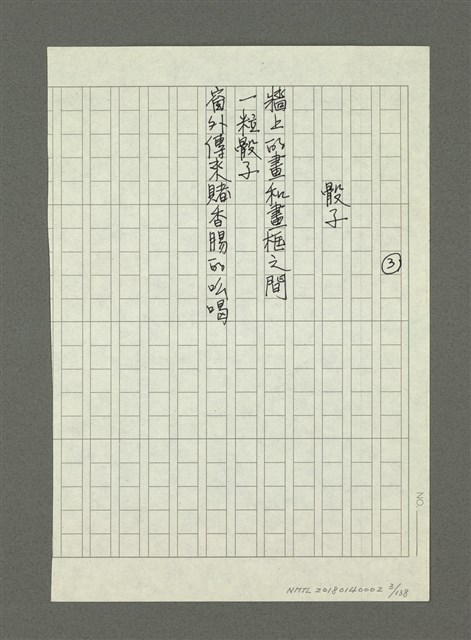 ③
骰子
牆上的畫和畫框之間
一粒骰子
窗外傳來賭香腸的吆喝
NO.
NMTL 20180140002 3/138